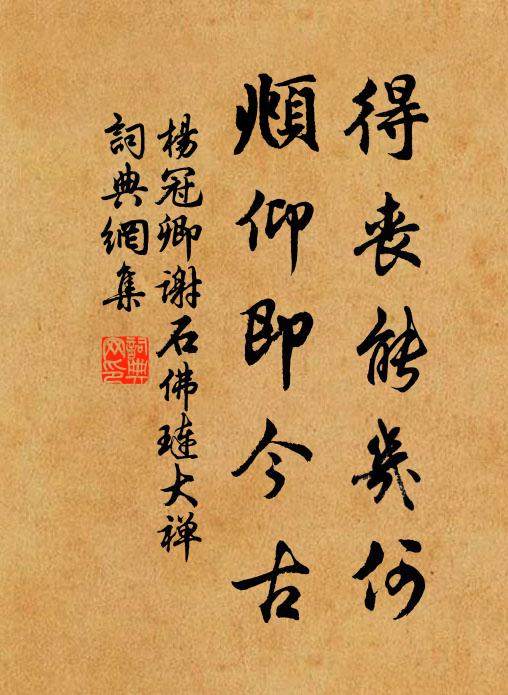 得喪能幾何
頫仰即今古
楊冠卿謝石佛璉大禅
詞典網集
詞典網印